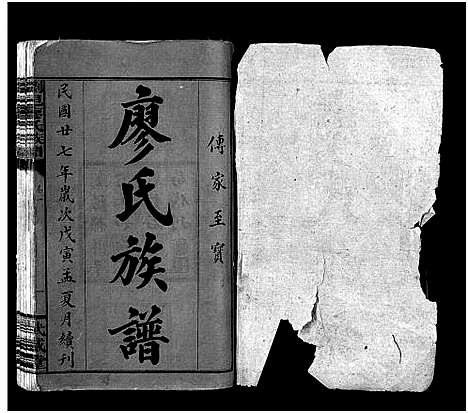 傳家至寶
廖氏族譜
民國廿七年歲次戊寅孟夏月續刊